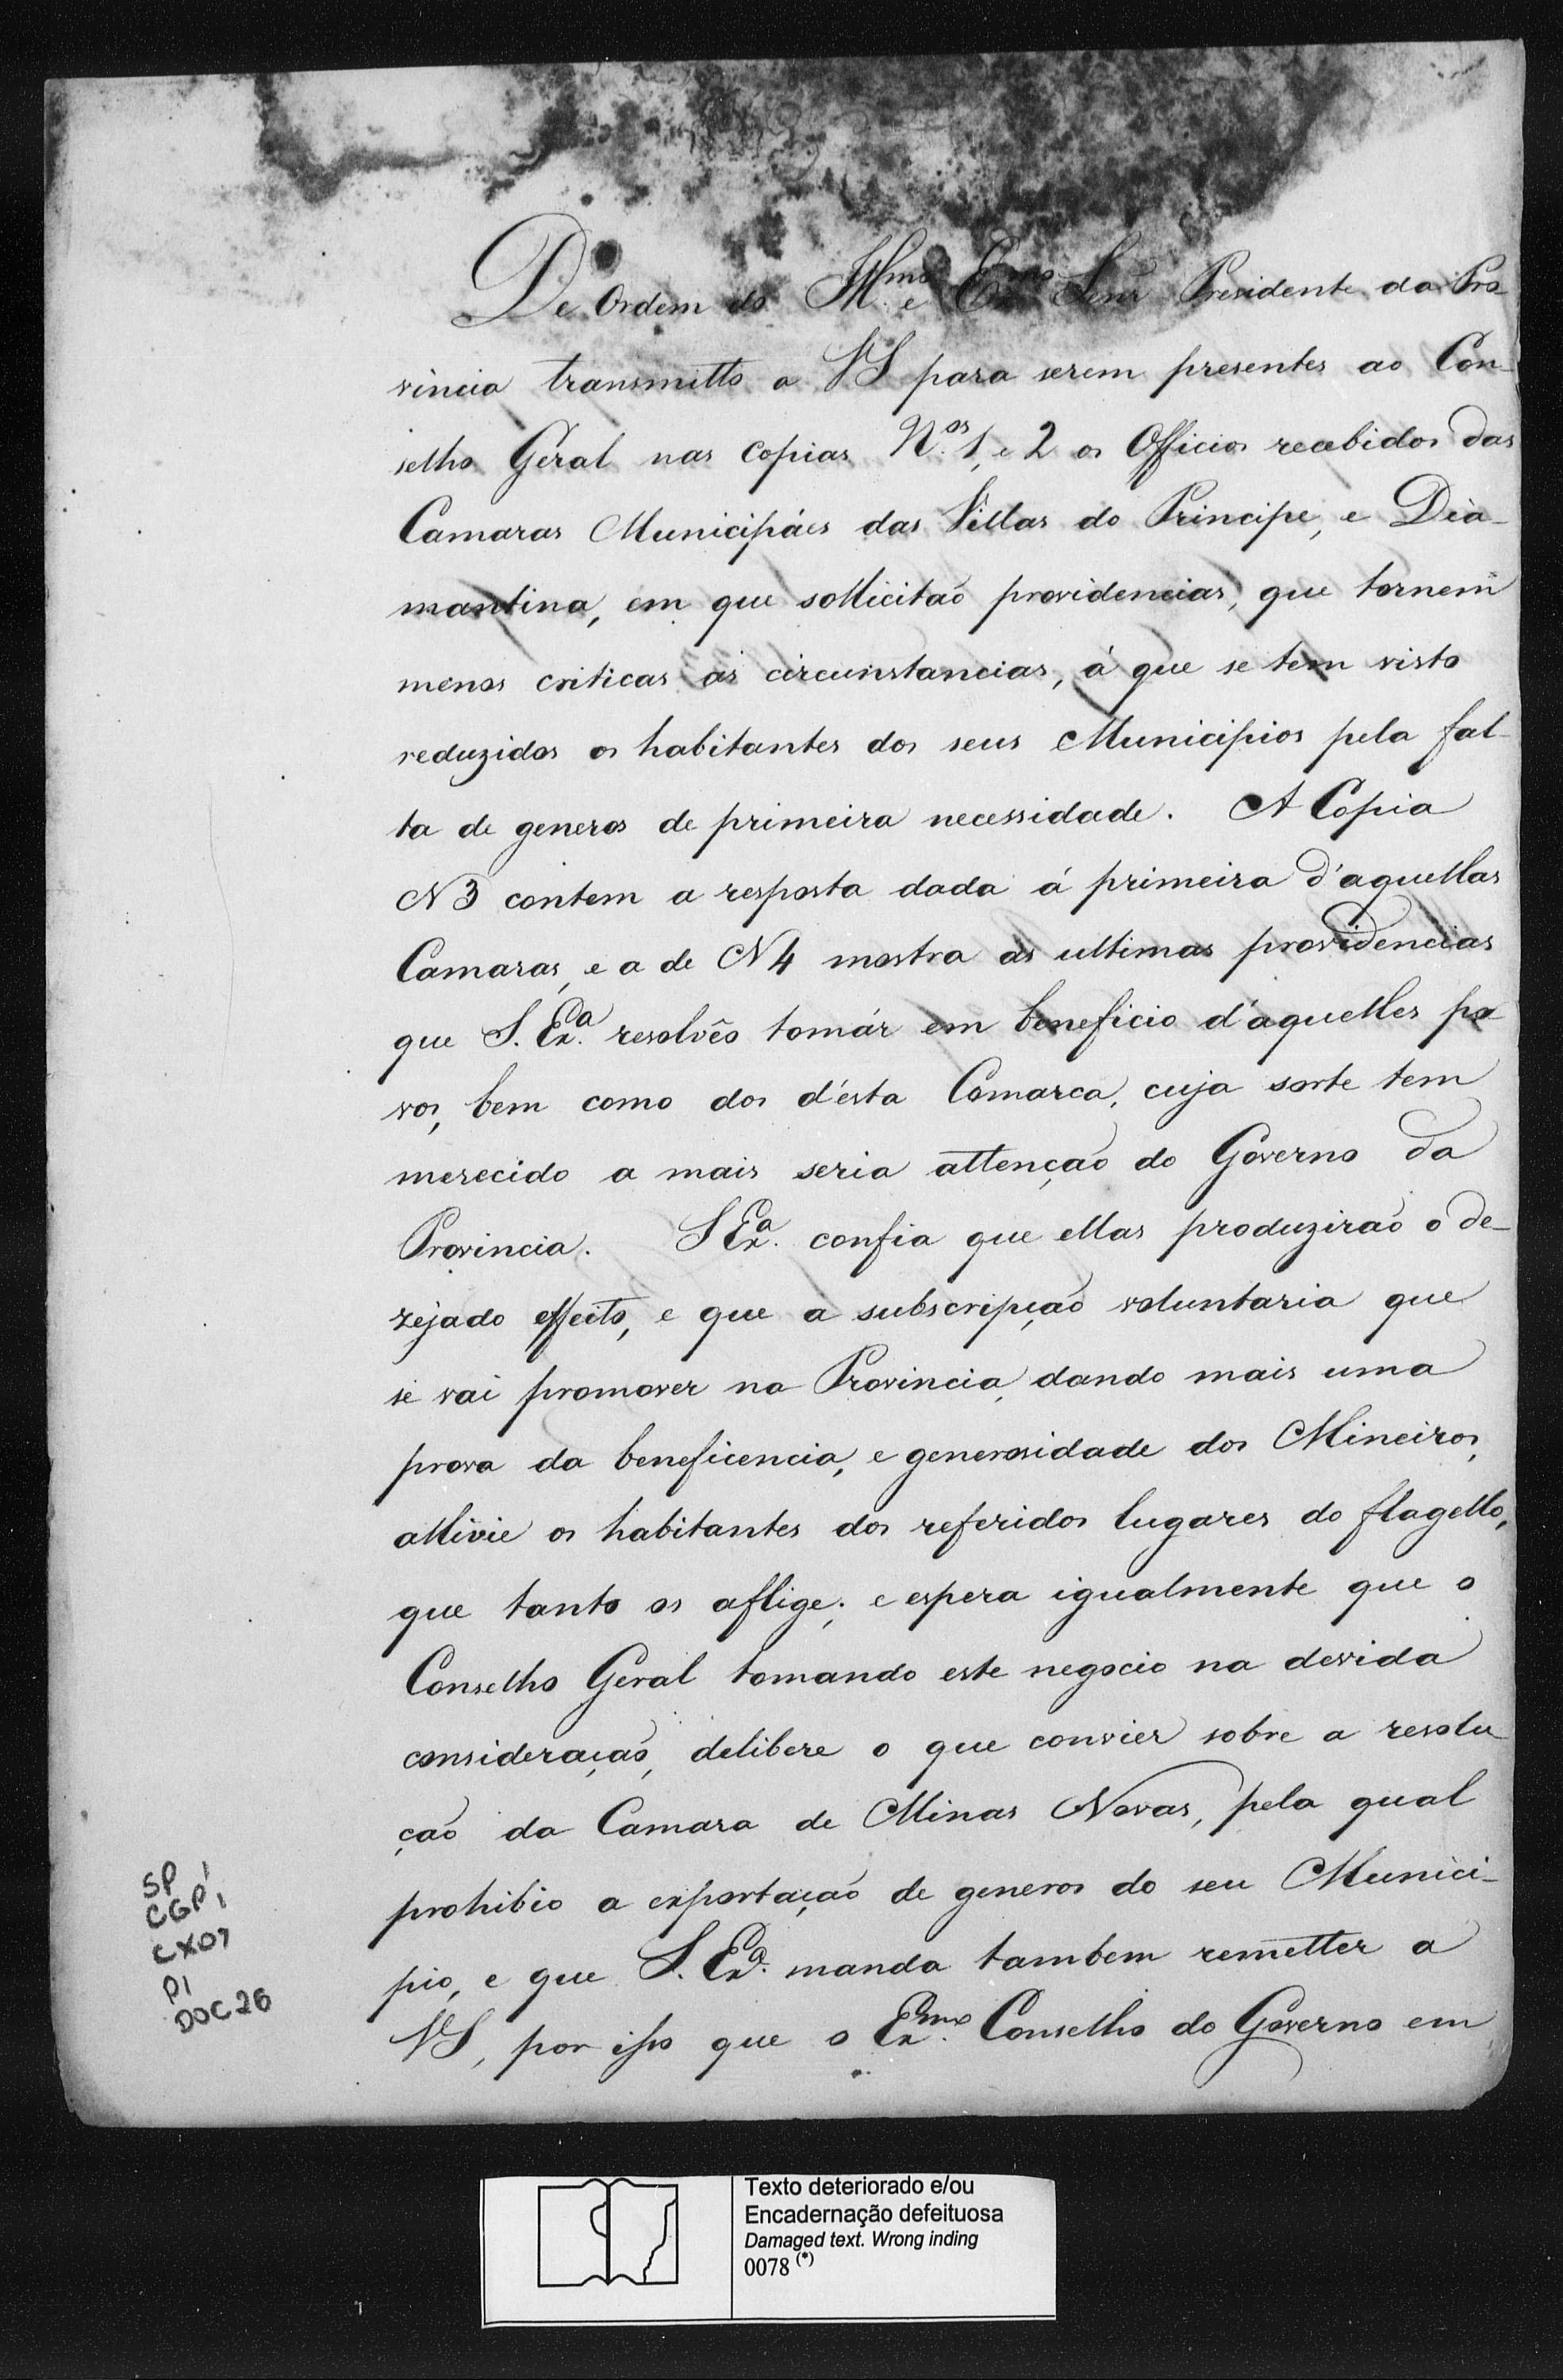 De Ordem do Illmo. e Exmo Senr Presidente da Pro-
vincia transmitto a VS para serem presentes ao Con-
selho Geral nas copias Nos. 1, e 2 os Officios recebidos das
Camaras Municipáes das Villas do Principe, e Dia-
mantina, em que sollicitaõ providencias, que tornem
menos criticas as circunstancias, á que se tem visto
reduzidos os habitantes dos seus Municipios pela fal-
ta de generos de primeira necessidade. A Copia
N 3 contem a resposta dada á primeira d'aquellas
Camaras, e a de N 4 mostra as ultimas providencias
que S. Exa. resolvêo tomár em beneficio d'aquelles po-
vos, bem como dos d'ésta Comarca, cuja sorte tem
merecido a mais seria attençaõ do Governo da
Provincia. S Exa. confia que ellas produziraõ o de-
zejado effeito, e que a subscripçaõ voluntaria que
se vai promover na Provincia, dando mais uma
prova da beneficencia, e generosidade dos Mineiros,
allivie os habitantes dos referidos lugares do flagello,
que tanto os aflige; e espera igualmente que o
Conselho Geral tomando este negocio na devida
consideraçaõ, delibere o que convier sobre a resolu-
çaõ da Camara de Minas Novas, pela qual
prohibio a exportaçaõ de generos do seu Munici-
pio, e que S. Exa. manda tambem remetter a
VS, por isso que o Exmo. Conselho do Governo em
SP
CGP1
CX07
P1
DOC26
Texto deteriorado e/ou
Encadernação defeituosa
Damaged text. Wrong inding
0078 (*)